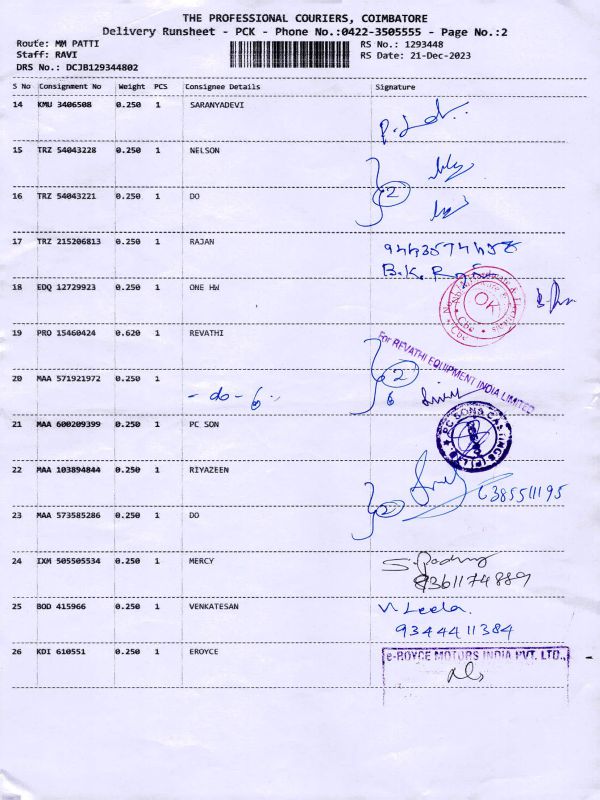 THE PROFESSIONAL COURIERS, COIMBATORE
Delivery Runsheet - PCK - Phone No.:0422-3505555 - Page No.:2
Route: MM PATTI RS No.: 1293448
Staff: RAVI RS Date: 21-Dec-2023
DRS No.: DCJB129344802
S No Consignment No Weight PCS Consignee Details Signature
14 KMU 3406508 0.250 1 SARANYADEVI
15 TRZ 54043228 0.250 1 NELSON
2
16 TRZ 54043221 0.250 1 DO
17 TRZ 215206813 0.250 1 RAJAN
B.K. Rajan
18 EDQ 12729923 0.250 1 ONE HW
OK
Cbe
19 PRO 15460424 0.620 1 REVATHI
For REVATHI EQUIPMENT INDIA LIMITED
20 MAA 571921972 0.250 1
2
- do - 6
6
21 MAA 600209399 0.250 1 PC SON
PC SONS CASTINGS (P) LTD
22 MAA 103894844 0.250 1 RIYAZEEN
6385511195
2
23 MAA 573585286 0.250 1 DO
24 IXM 505505534 0.250 1 MERCY
9361174889
25 BOD 415966 0.250 1 VENKATESAN
V. Leela.
9344411384
26 KDI 610551 0.250 1 EROYCE
e-ROYCE MOTORS INDIA PVT. LTD.,